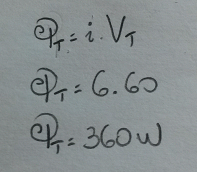 P_T = i . V_T
P_T = 6.60
P_T = 360W